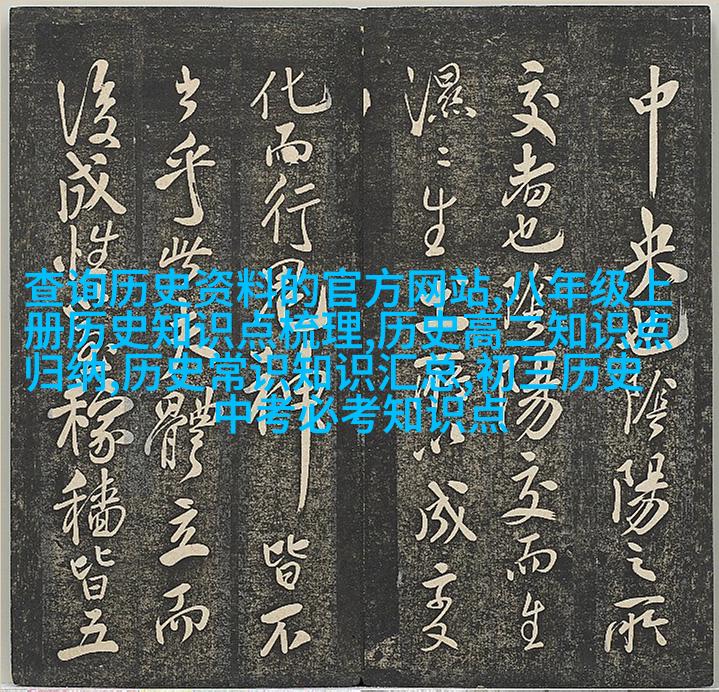 查询历史资料的官方网站,八年级上
册历史知识点梳理,历史高二知识点
归纳,历史常识知识汇总,初三历史
中考必考知识点
中央也陰陽之所
交者也陰陽交而生
濕〻生土所以成变
化而行鬼神皆不
出乎此大體立而
後成性稼穡皆五